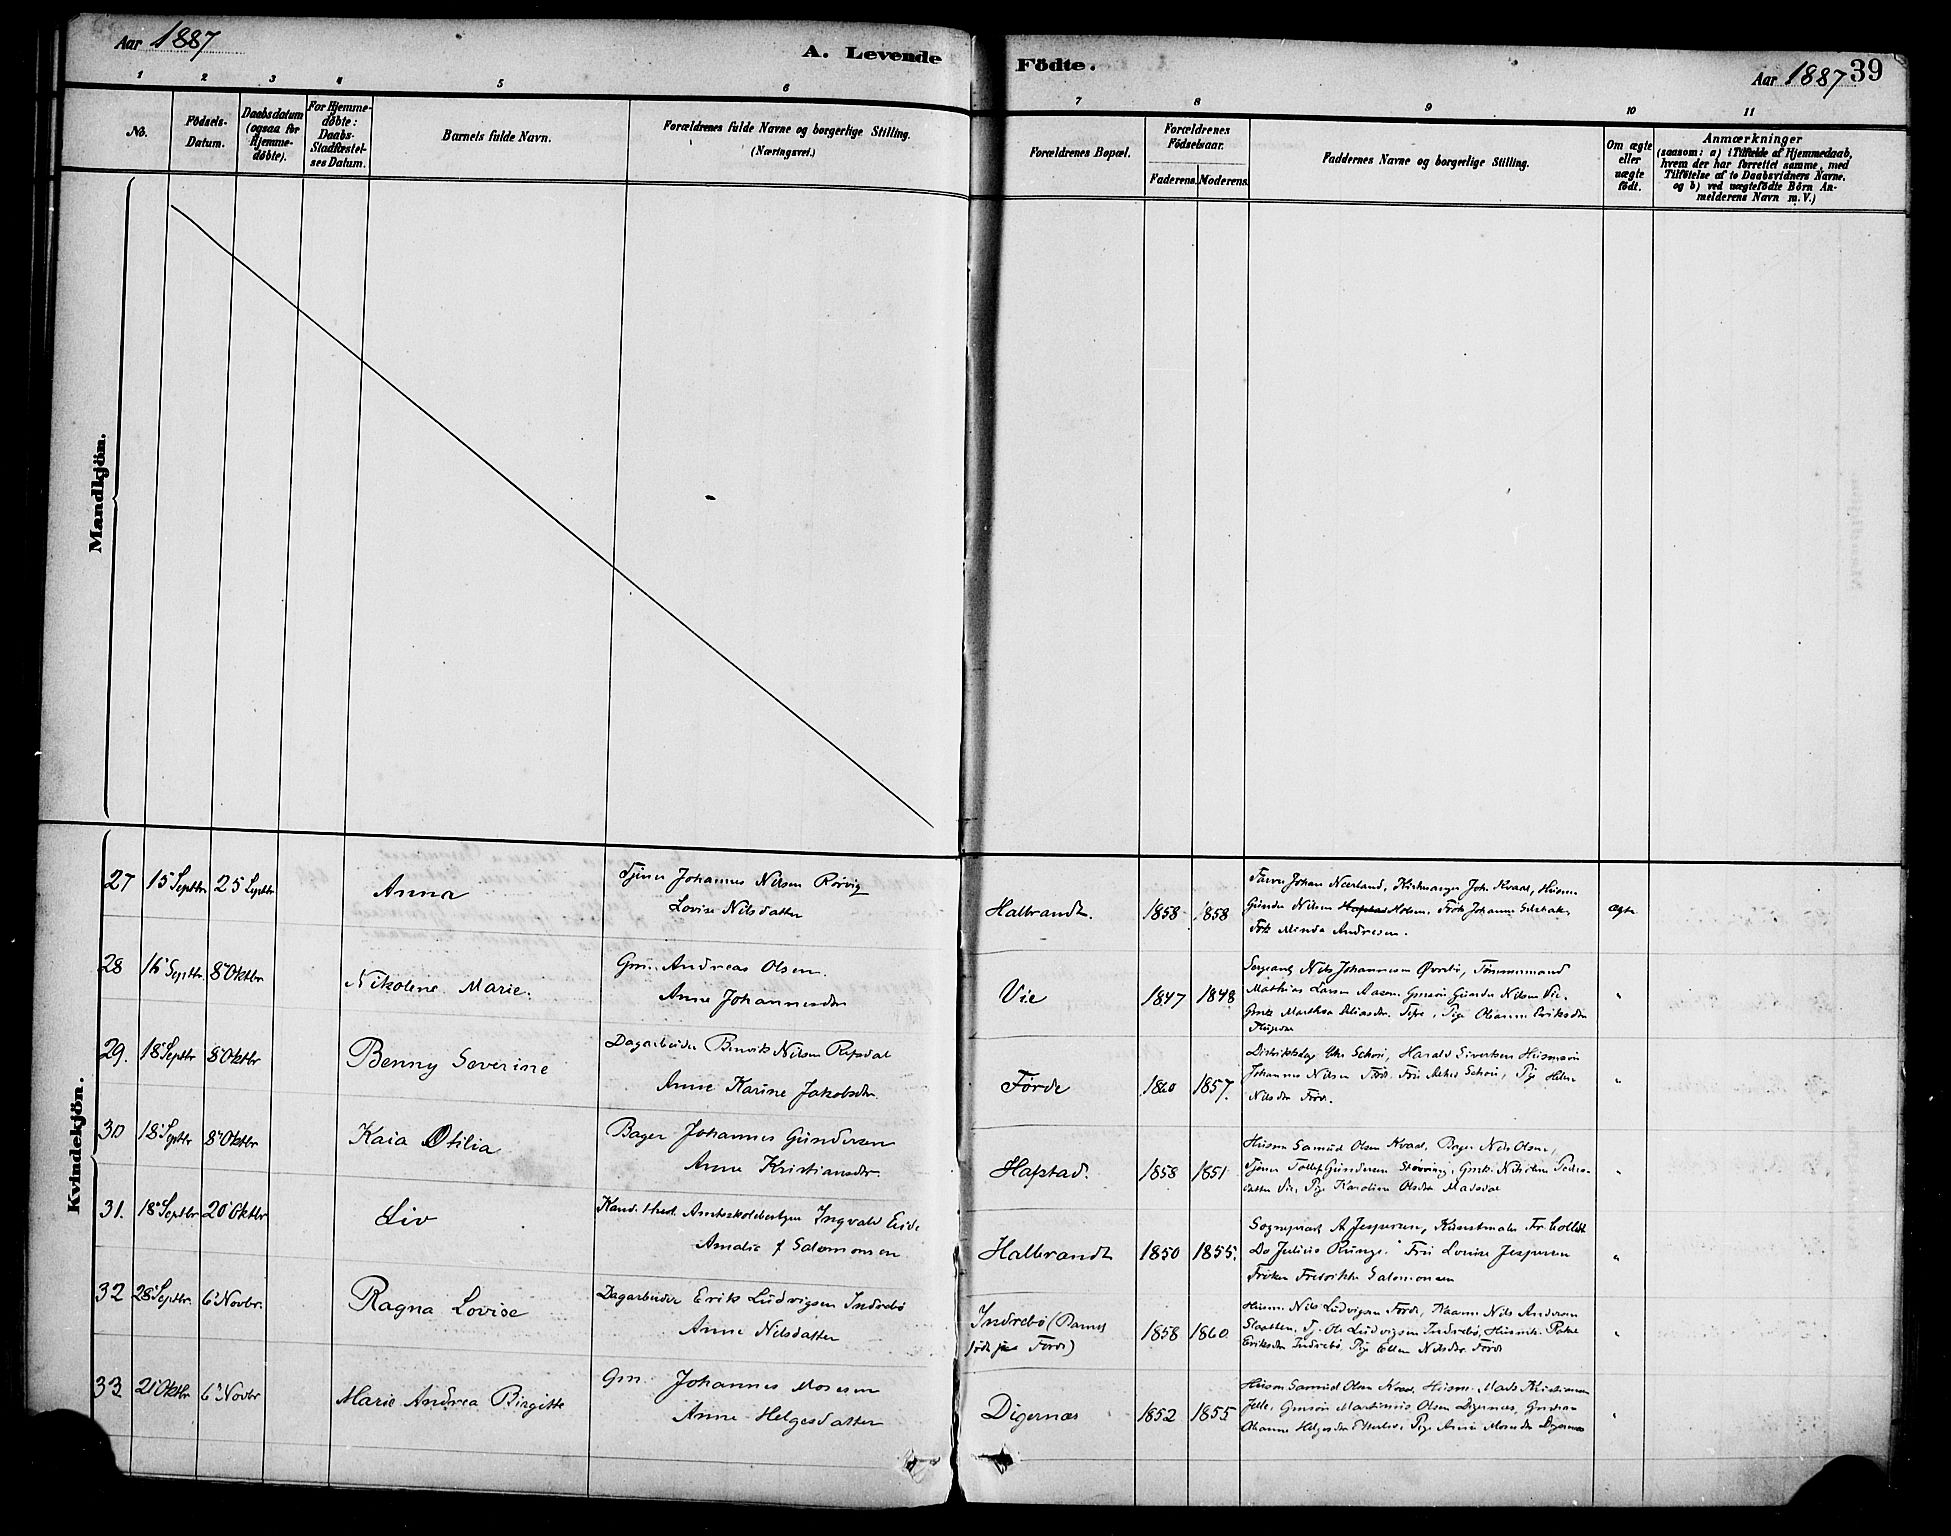 Aar 1887
A. Levende Födte.
Aar 1887 39
1 2 3 4 5 6 7 8 9 10 11
No.
Födsels-Datum.
Daabsdatum (ogsaa for Hjemme-döbte).
For Hjemme-döbte: Daabs-Stadfæstel-ses Datum.
Barnets fulde Navn.
Forældrenes fulde Navne og borgerlige Stilling.
(Næringsvei.)
Forældrenes Bopæl.
Forældrenes Födselsaar.
Faderens. Moderens.
Faddernes Navne og borgerlige Stilling.
Om ægte eller uægte födt.
Anmærkninger
(saasom: a) i Tilfælde af Hjemmedaab,
hvem der har forrettet samme, med
Tilföielse af to Daabsvidners Navne,
og b) ved uægtefödte Börn An-
melderens Navn m. V.)
Mandkjön.
Kvindekjön.
27 15 Septbr 25 Septbr Anna
Tjener Johannes Nilsen Rørvig
Lovise Nilsdatter
Halbrandt. 1858 1858
Johan Neerland, Kirkesanger Joh. Kvaal, Husm.
Gunder Nilsen Hafstad Holsen, Frøk Johanne
Frk Minda Andresen.
ægte
28 16 Septbr. 8 Oktbr Nikoline Marie.
Gm. Andreas Olsen.
Anne Johannesdtr
Vie 1847 1848
Sergeant Nils Johannesen Øvrebø, Tømmermand
Mathias Larsen Aasen. Gmsøn Gunder Nilsen Vie.
"
29. 18 Septbr 8 Oktbr Benny Severine
Dagarbeider Nilsen Refsdal
Anne Karine Jakobsdtr.
Førde 1860 1857.
Harald Sivertsen Husmsøn
Johannes Nilsen Førde. Pige Helene
Nilsdtr Førde.
"
30 18 Septbr 8 Oktbr Kaia Otilia
Bager Johannes Gundersen
Anne Kristiansdtr.
Hafstad. 1858 1851
Husm Samuel Olsen Kvaal, Bager Nils Olsen,
Tjener Tollef Gundersen
datter Vie, Pige Karoline Olsdtr Madsdal
"
31. 18 Septbr 20 Oktbr Liv
Kand. theol. Amtsskolebestyrer Ingvald Eide
Amalie f Salomonsen
Halbrandt 1850 1855.
Sogneprest A Jespersen, Kunstmaler Fr. Collett
Do Julius Runge. Fru Lovise Jespersen
Frøken Fredrikke Salomonsen
"
32 28 Septbr. 6 Novbr. Ragna Lovise
Dagarbeider Erik Ludvigsen Indrebø
Anne Nilsdatter
Indrebø (Barnet
født paa Førde)
1858 1860.
Husm. Nils Ludvigsen Førde, Nils Andersen
Slaatten, Tj. Ole Ludvigsen Indrebø, Husmk.
Eriksdtr Indrebø, Pige Ellen Nilsdtr. Førde
"
33. 21 Oktbr 6 Novbr Marie Andrea Birgitte
Gm. Johannes Mosesen
Anne Helgesdatter
Digernæs 1852 1855
Husm Samuel Olsen Kvaal, Husm. Mads Kristiansen
Gmsøn Martinius Olsen Digernæs,
Helgesdtr Pige Anne Mosesdtr Digernæs
"